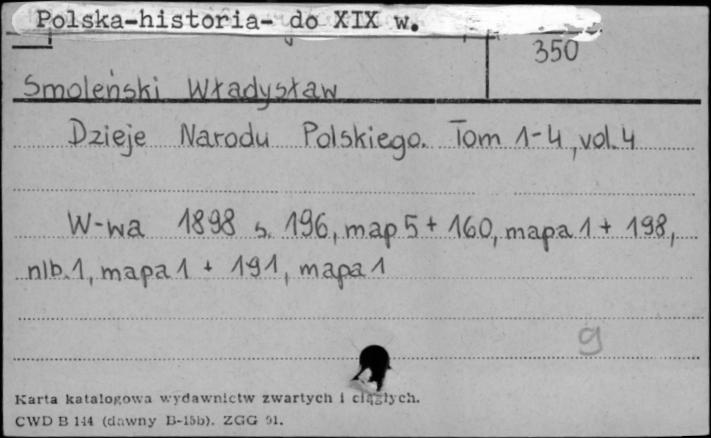 Polska-historia- do XIX w.
350
Smoleński Władysław
Dzieje Narodu Polskiego. Tom 1-4, vol. 4
W-wa 1898 s. 196, map 5 + 160, mapa 1 + 198,
nlb. 1, mapa 1 + 191, mapa 1
g
Karta katalogowa wydawnictw zwartych i ciągłych.
CWD B 144 (dawny B-15b). ZGG 91.